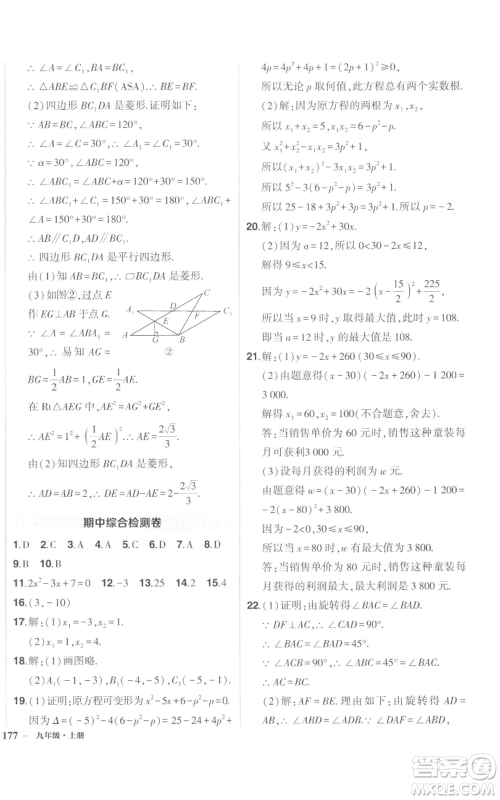 ∴ ∠A=∠C₁,BA=BC₁.
∴ △ABE≌△C₁BF(ASA).∴ BE=BF.
(2)四边形 BC₁DA 是菱形.证明如下:
∵ AB=BC,∠ABC=120°,
∴ ∠A=∠C=∠C₁=30°.
∵ α=30°,∴ ∠ABC₁=150°.
∴ ∠ABC₁=∠ABC+α=120°+30°=150°,
∴ ∠ABC₁+∠C₁=150°+30°=180°,
∠ABC₁+∠A=150°+30°=180°.
∴ 四边形 BC₁DA 是平行四边形.
由(1)知 AB=BC₁,∴ ▱BC₁DA 是菱形.
(3)如图②,过点 E
作 EG⊥AB 于点 G,
则∠A=∠ABA₁=
30°,∴ 易知 AG=
BG=1/2AB=1,GE=1/2AE.
A₁ D C₁ A E F C G B ②
在 Rt△AEG 中,AE²=AG²+GE²,
∴ AE²=1²+(1/2AE)²,∴ AE=2√3/3.
由(2)知四边形 BC₁DA 是菱形,
∴ AD=AB=2,∴ DE=AD-AE=2-2√3/3.
期中综合检测卷
1.D 2.C 3.A 4.C 5.D 6.D 7.A 8.D
9.B 10.D
11.2x²-3x+7=0 12.-3 13.25 14.2 15.4
16.(3,-10)
17.解:(1)x₁=-3,x₂=1.
(2)x₁=4,x₂=1.
18.解:(1)画图略.
(2)A₁(-4,-1),B₁(-1,-1),C₁(-2,-4).
19.(1)证明:原方程可变形为 x²-5x+6-p²-p=0.
因为 Δ=(-5)²-4(6-p²-p)=25-24+4p²+
177 九年级·上册
4p=4p²+4p+1=(2p+1)²≥0,
所以无论 p 取何值,此方程总有两个实数根.
(2)解:因为原方程的两根为 x₁,x₂,
所以 x₁+x₂=5,x₁x₂=6-p²-p.
又 x₁²+x₂²-x₁x₂=3p²+1,
所以(x₁+x₂)²-3x₁x₂=3p²+1,
所以 5²-3(6-p²-p)=3p²+1,
所以 25-18+3p²+3p=3p²+1,所以 p=-2.
20.解:(1)y=-2x²+30x.
(2)因为 a=12,所以 0<30-2x≤12,
解得 9≤x<15.
因为 y=-2x²+30x=-2(x-15/2)²+225/2,
所以当 x=9 时,y 的最大值是 108.
即当 a=12 时,y 的最大值是 108.
21.解:(1)y=-2x+260(30≤x≤80).
(2)由题意得(x-30)(-2x+260)-1 200=
3 000.
解得 x₁=60,x₂=100(不合题意,舍去).
答:当销售单价为 60 元时,销售这种童装每
月可获利 3 000 元.
(3)设每月获得的利润为 w 元.
由题意得 w=(x-30)(-2x+260)-1 200=
-2(x-80)²+3 800.
∵ -2<0,30≤x≤80,
∴ 当 x=80 时,w 有最大值,为 3 800.
答:当销售单价为 80 元时,销售这种童装每
月获得的利润最大,最大利润是 3 800 元.
22.(1)证明:由旋转的性质得∠BAC=∠BAD.
∵ DF⊥AC,∴ ∠CAD=90°.
∴ ∠BAC=∠BAD=45°.
∵ ∠ACB=90°,∴ ∠ABC=45°,∴ AC=BC.
(2)解:由旋转的性质得 AD=AB,